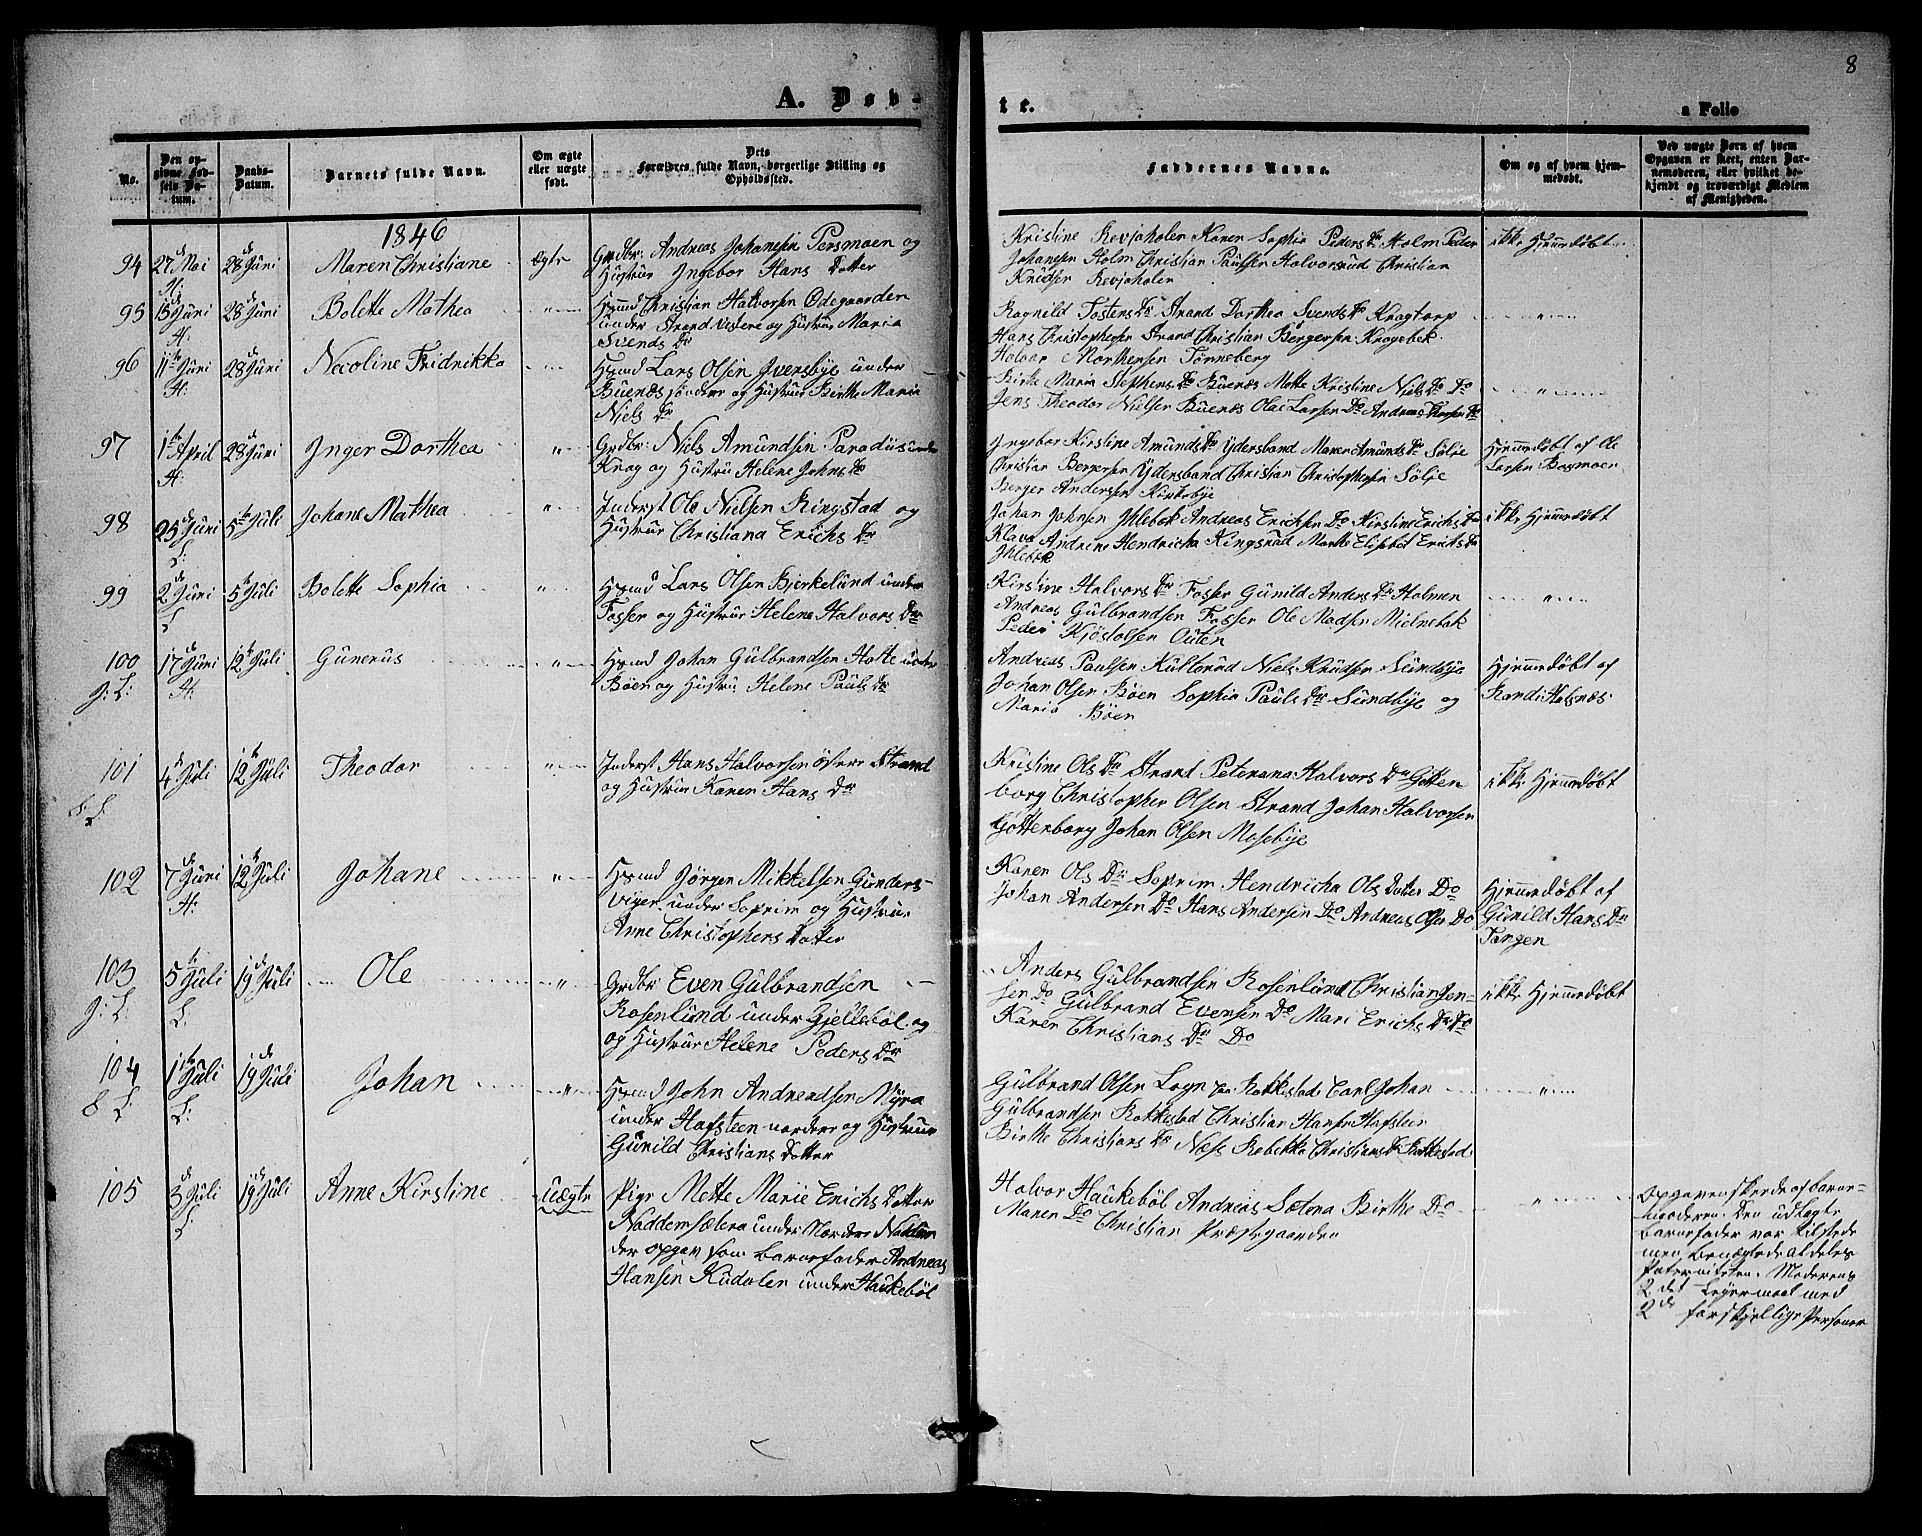 8
A. Døb-
te.
a Folio
No.
Den opgivne Fødsels Datum.
Daabs-Datum.
Barnets fulde Navn.
Om ægte eller uægte født.
Dets Forældres fulde Navn, borgerlige Stilling og Opholdssted.
Faddernes Navne.
Om og af hvem hjemmedøbt.
Ved uægte Børn af hvem Opgaven er skeet, enten Barnemoderen, eller hvilket bekjendt og troværdigt Medlem af Menigheden.
1846
94 27de Mai 28de Juni Maren Christiane ægte
Grdbr: Andreas Johansen Persmoen og
Hustrue Ingebor Hans Datter
Kristine Revjaholen Karen Sophia Peders Dtr Holm Peder
Johansen Holm Christian Paulsen Halvorsrud Christian
Knudsen Revjaholen
ikke Hjemmedøbt
95 15de Juni 28de Juni Bolette Mathea "
H:
Hsmd Christian Halvorsen Ødegaarden
under Strand Vestere og Hustrue Maria
Svends Dtr
Ragnild Tostens Dtr Strand Dorthea Svends Dtr Kragtorp
Hans Christophersen Strand Christian Børgersen Kragebek
Halvor Morthensen Tønneberg
"
96 11te Juni 28de Juni Nicoline Fridrikka
H:
Hsmd Lars Olsen Iversbye under
Buenæs søndere og Hustrue Birthe Maria
Niels Dtr
Birthe Maria Stephens Dtr Buenæs Mette Kristine Niels Dtr Do
Jens Theodor Nielsen Buenæs Olae Larsen Do Andreas Larsen Do
"
97 1te April 28de Juni Inger Dorthea "
H:
Grdbr: Niels Amundsen Paradiis under
Krag og Hustrue Helene Johns Dtr
Ingebor Kirstine Amunds Dtr Ydersband Maren Amunds Dtr Sølje
Christian Bergersen Ydersband Christian Christophersen Sølje
Berger Andersen Kirkebye
Hjemmedøbt af Ole
Larsen Basmoen
98 25de Juni 5te Juli Johane Mathea "
L:
Inderst Ole Nielsen Ringstad og
Hustrue Christiana Erichs Dtr
Johan Johnsen Ihlebek Andreas Erichsen Do Kirstine Erichs Dtr
Klava Andrine Hendricha Ringsrud Marthe Elisebet Erichs Dtr
Ihlebek
ikke Hjemmedøbt
99 2de Juni 5te Juli Bolette Sophia "
L
Hsmd Lars Olsen Bjerkelund under
Fosser og Hustrue Helene Halvors Dtr
Kirstine Halvors Dtr Fosser Gunild Anders Dtr Holmen
Andreas Gulbrandsen Fosser Ole Madsen Mielnebek
Peder Kjøstolsen Outen
"
100 17de Juni 12te Juli Gunerus "
g: L: H:
Hsmd Johan Gulbrandsen Holte under
Bøen og Hustrue Helene Pauls Dtr
Andreas Paulsen Kulterud Niels Knudsen Sundbye
Johan Olsen Bøen Sophia Pauls Dtr Sundbye og
Maria Bøen
Hjemmedøbt af
Randi Halsnæs
101 4de Juli 12te Juli Theodor "
8 L:
Inderst Hans Halvorsen østere Strand
og Hustrue Karen Hans Dtr
Kristine Ols Dtr Strand Peterana Halvors Dtr Gotten
borg Christopher Olsen Strand Johan Halvorsen
Gottenborg Johan Olsen Mosebye
ikke Hjemmedøbt
102 7de Juni 12te Juli Johane "
H:
Hsmd Jørgen Mikkelsen Gunders-
vigen under Soprim og Hustrue
Anne Christophers Datter
Karen Ols Dtr Soprim Hendricha Ols Datter Do
Johan Andersen Do Hans Andersen Do Andreas Olsen Do
Hjemmedøbt af
Gunild Hans Dtr
Tangen
103 5te Juli 19de Juli Ole "
g: L: L.
Grdbr: Even Gulbrandsen
Rosenlund under Gjellebøl og
og Hustrue Helene Peders Dtr
Anders Gulbrandsen Rosenlund Christian Jen-
sen Do Gulbrand Evensen Do Mari Erichs Dtr Do
Karen Christians Dtr Do
ikke Hjemmedøbt
104 1te Juli 19de Juli Johan "
8 L: L:
Hsmd John Andreasen Myra
under Hafsteen nordere og Hustrue
Gunild Christians Datter
Gulbrand Olsen Logn paa Rakkestad Carl Johan
Gulbrandsen Rakkestad Christian Hansen Hafsteen
Birthe Christians Dtr Næss Rebekka Christians Dtr Rakkestad
"
105 3de Juli 19de Juli Anne Kirstine uægte
L:
Pige Mette Marie Erichs Datter
Naddemsætera under Nordre Naddem
der opgav som Barnefader Andreas
Hansen Kudalen under Haukebøl
Halvor Haukebøl Andreas Sætra Birthe Do
Maren Do Christian Præstegaarden
"
Opgaven skeede af barne-
moderen. Den udlagte
barnefader var tilstede
men benægtede at deles
Paterniteten. Moderens
2det Leyermaal med
2de forskjellige Personer